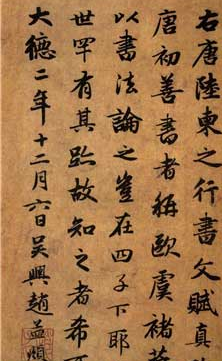 右唐陸柬之行書文賦真
唐初善書者稱歐虞褚薛
以書法論之豈在四子下耶
世罕有其跡故知之者希耳
大德二年十二月六日吳興趙孟頫